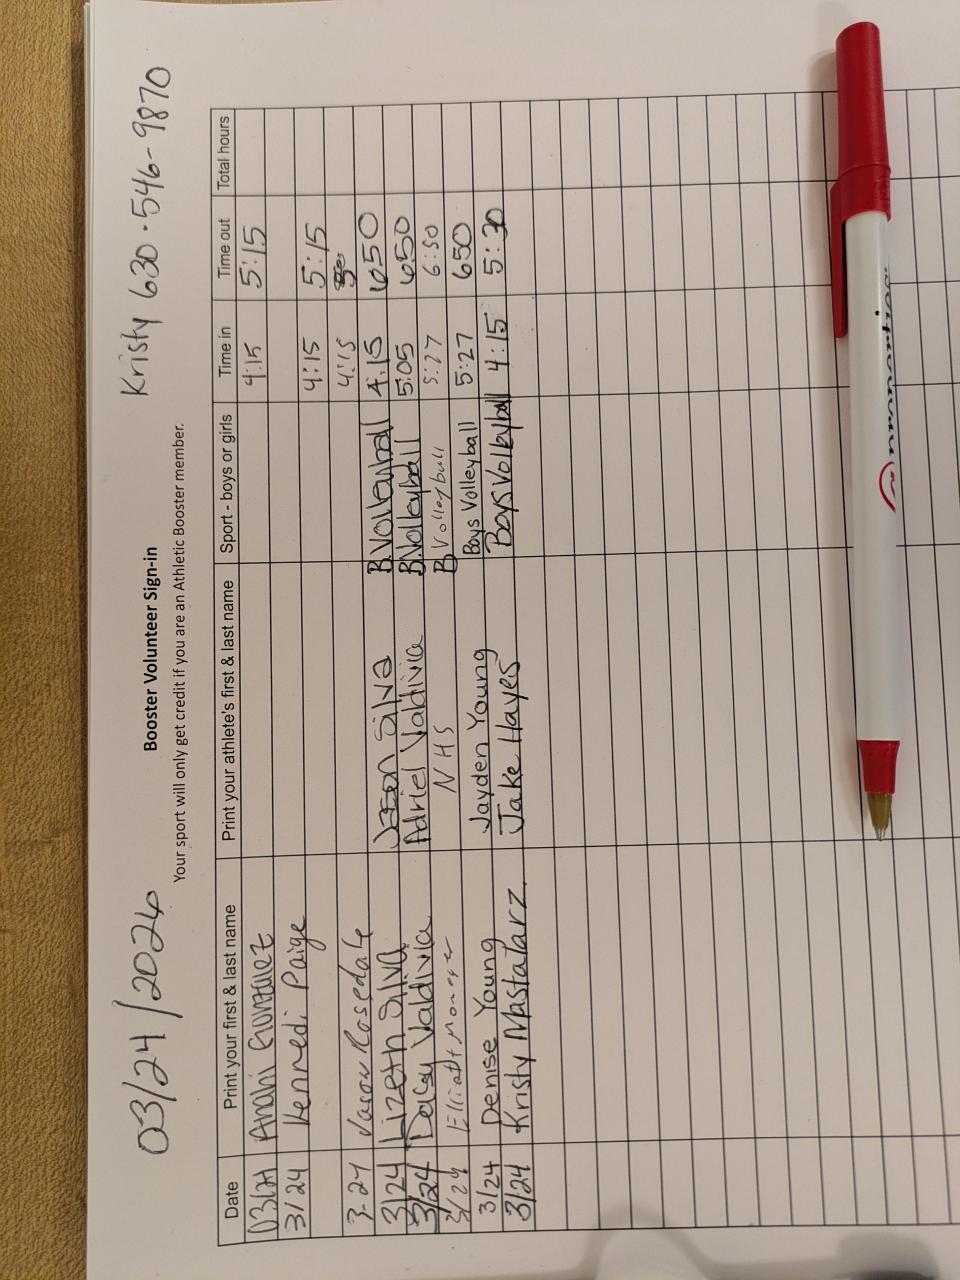 03/24/2026 Kristy 630-546-9870
Booster Volunteer Sign-in
Your sport will only get credit if you are an Athletic Booster member.
Date Print your first & last name Print your athlete's first & last name Sport - boys or girls Time in Time out Total hours
03/24 Anahi Gonzalez 4:15 5:15
3/24 Kennedi Paige 4:15 5:15
3-24 Jason Rosedale 4:15
3/24 Lizeth Silva Jason Silva B.Volleyball 4:15 650
3/24 Delcy Valdivia Adriel Valdivia B.Volleyball 5:05 650
3/24 Elliott NHS B Volleyball 5:27 6:50
3/24 Denise Young Jayden Young Boys Volleyball 5:27 650
3/24 Kristy Mastalarz Jake Hayes Boys Volleyball 4:15 5:30